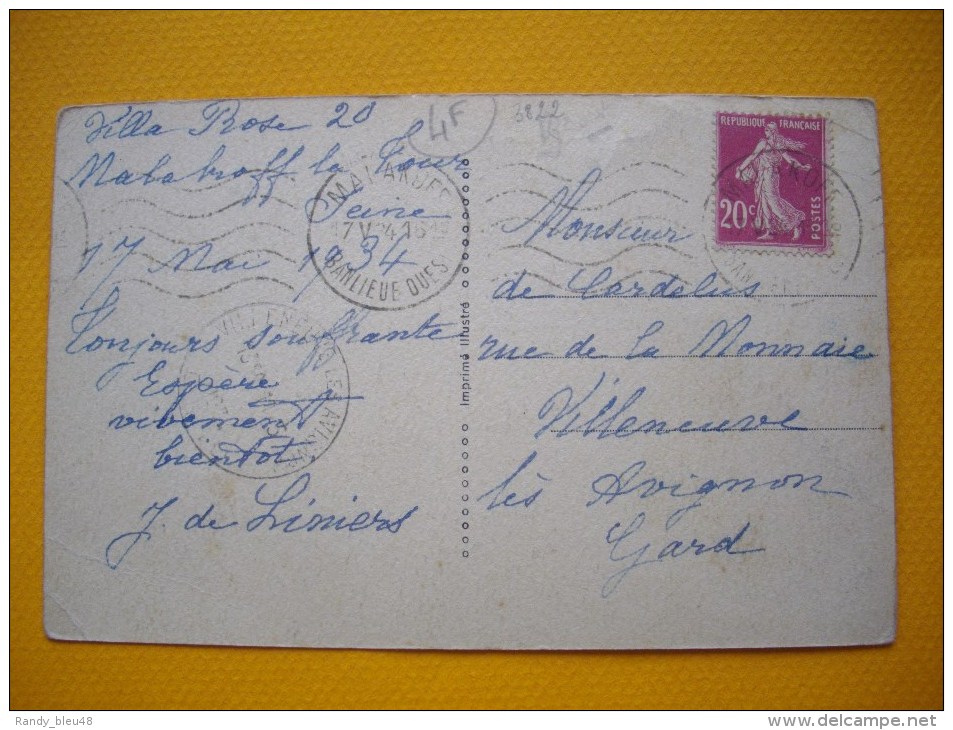 Villa Rose 20
Malakoff la Tour
Seine
17 Mai 1934
Toujours souffrante
Espère
vivement
bientot.
J. de Liniers
4F
3822
MALAKOFF
17 V 34 16
BANLIEUE OUEST
VILLENEUVE LES AVIGNON
Imprimé Illustré
REPUBLIQUE FRANÇAISE
20c
POSTES
Monsieur
de Cardelus
rue de la Monnaie
Villeneuve
lès Avignon
Gard
Randy_bleu48
delcampe.net